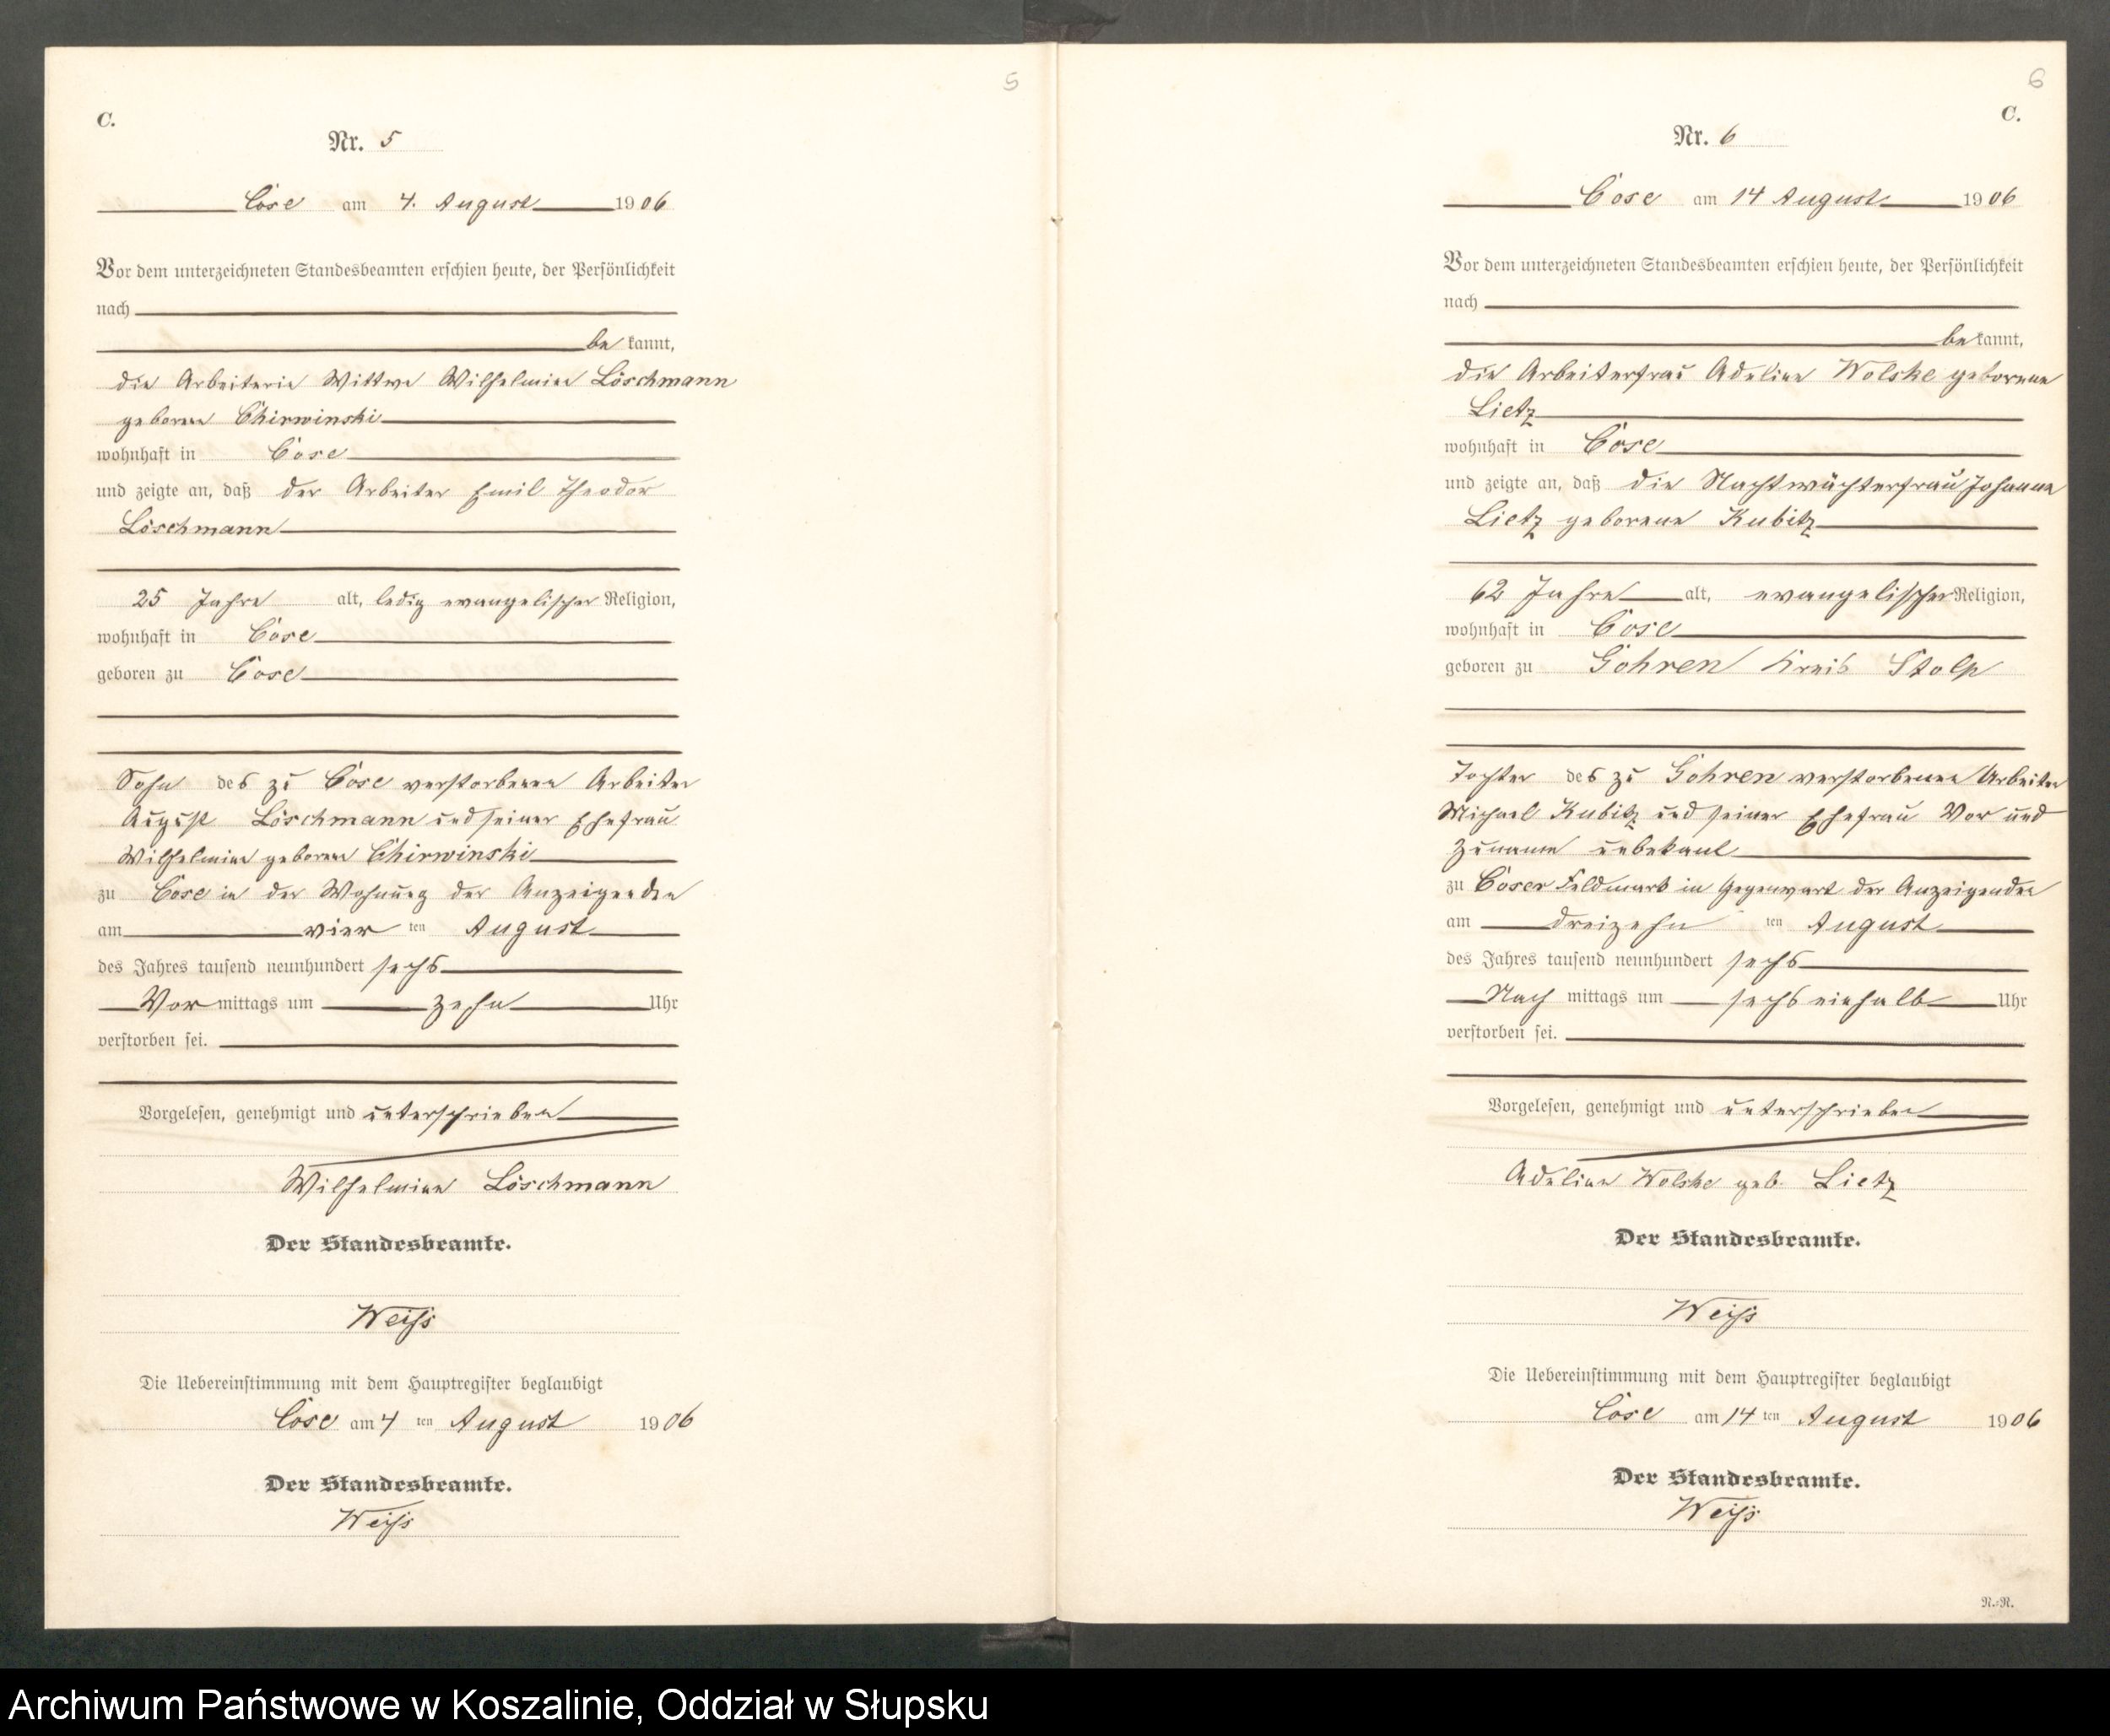 5
C.
Nr. 5
Cöse am 4. August 1906
Vor dem unterzeichneten Standesbeamten erschien heute, der Persönlichkeit
nach
be kannt,
die Arbeiterin Wittwe Wilhelmine Löschmann
geborene Chirwinski
wohnhaft in Cöse
und zeigte an, daß der Arbeiter Emil Theodor
Löschmann
25 Jahre alt, ledig evangelischer Religion,
wohnhaft in Cöse
geboren zu Cöse
Sohn des zu Cöse verstorbenen Arbeiter
August Löschmann und seiner Ehefrau
Wilhelmine geborene Chirwinski
zu Cöse in der Wohnung der Anzeigenden
am vier ten August
des Jahres tausend neunhundert sechs
Vor mittags um zehn Uhr
verstorben sei.
Vorgelesen, genehmigt und unterschrieben
Wilhelmine Löschmann
Der Standesbeamte.
Weiß
Die Uebereinstimmung mit dem Hauptregister beglaubigt
Cöse am 4 ten August 1906
Der Standesbeamte.
Weiß
6
C.
Nr. 6
Cöse am 14 August 1906
Vor dem unterzeichneten Standesbeamten erschien heute, der Persönlichkeit
nach
be kannt,
die Arbeiterfrau Adeline Wolske geborene
Lietz
wohnhaft in Cöse
und zeigte an, daß die Nachtwächterfrau Johanna
Lietz geborene Kubitz
62 Jahre alt, evangelischer Religion,
wohnhaft in Cöse
geboren zu Gohren Kreis Stolp
Tochter des zu Gohren verstorbenen Arbeiter
Michael Kubitz und seiner Ehefrau Vor und
Zuname unbekant
zu Cöser Feldmark in Gegenwart der Anzeigenden
am dreizehn ten August
des Jahres tausend neunhundert sechs
Nach mittags um sechseinhalb Uhr
verstorben sei.
Vorgelesen, genehmigt und unterschrieben
Adeline Wolske geb. Lietz
Der Standesbeamte.
Weiß
Die Uebereinstimmung mit dem Hauptregister beglaubigt
Cöse am 14 ten August 1906
Der Standesbeamte.
Weiß
N.-N.
Archiwum Państwowe w Koszalinie, Oddział w Słupsku